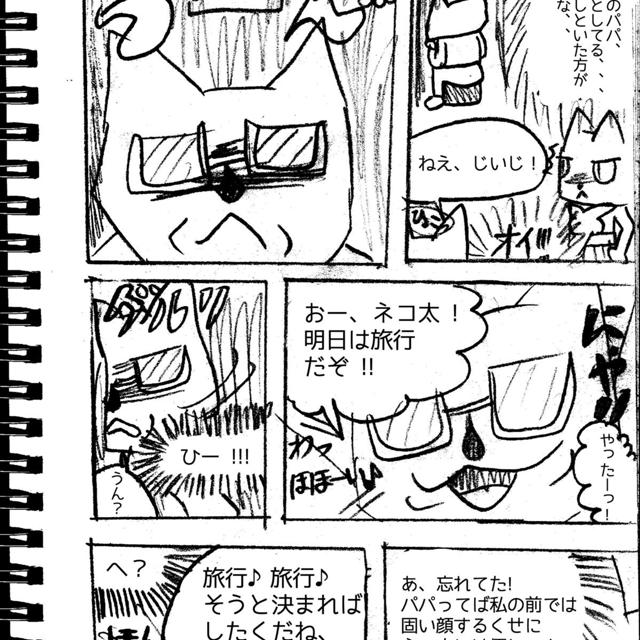 のパパ、
としてる、、、
しといた方が
な、、
ねえ、じいじ！
ひょこ
オイ!!!
うん？
ひー !!!
おー、ネコ太！
明日は旅行
だぞ !!
にゃ!!
わっ
ほほーい
やったーっ！
へ？
旅行♪ 旅行♪
そうと決まれば
したくだね、
あ、忘れてた!
パパってば私の前では
固い顔するくせに